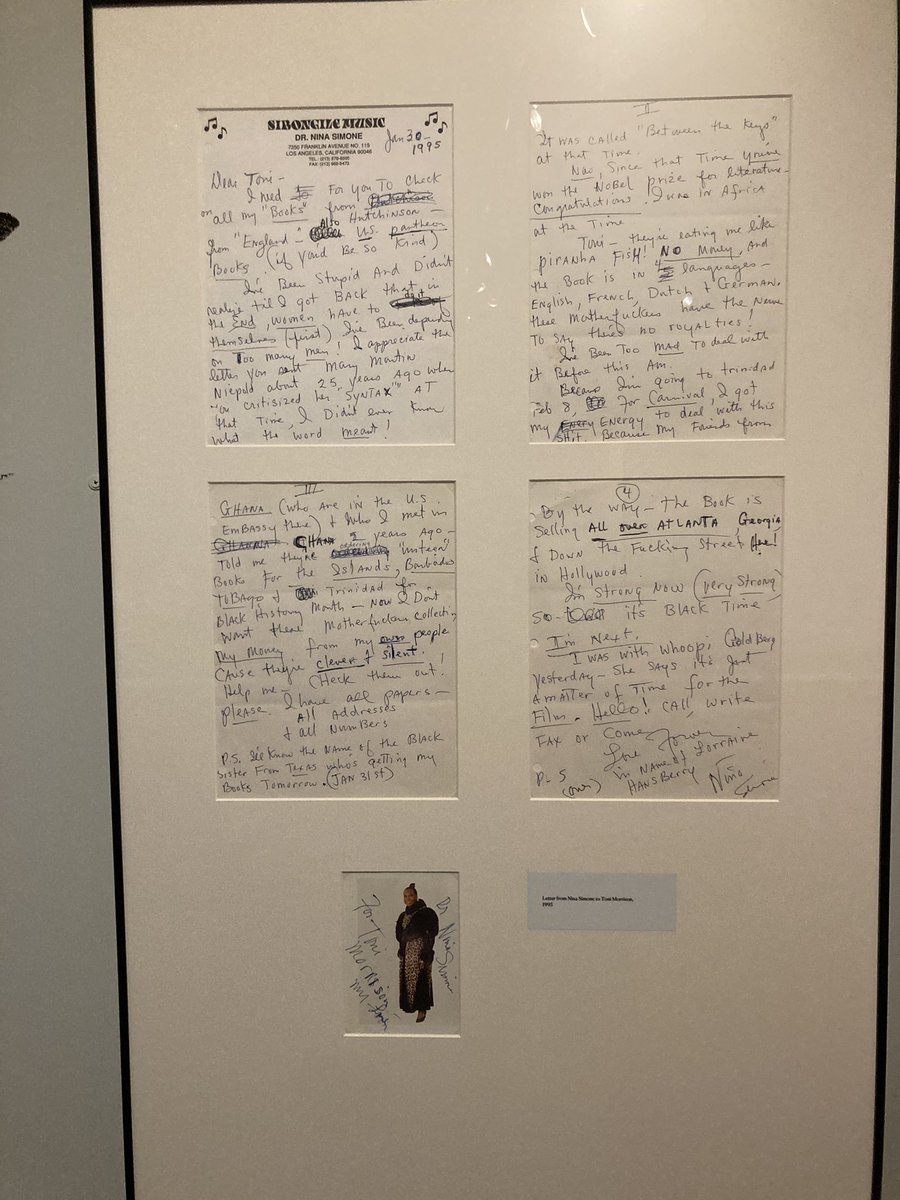 SIBONGILE MUSIC
DR. NINA SIMONE
7250 FRANKLIN AVENUE NO. 115
LOS ANGELES, CALIFORNIA 90046
Jan 30-
1995
Dear Toni-
I need for you To Check
on all my "Books" from
from "England- Also Hutchinson-
U.S. pantheon
Books (if you'd Be so Kind)
I've Been Stupid And Didn't
realize til I got BACK that in
the end, women have to
themselves (first) I've Been depending
on Too many men! I appreciate the
letter you sent Mary Martin
Niepold about 25 years Ago when
you critisized her "SYNTAX" AT
that Time, I Didn't even Know
what the word meant!
II
It was called "Between the Keys"
at that Time.
Now, Since that Time you've
won the NOBel prize for literature-
Congratulations. I was in Africa
at the Time
Toni- they're eating me like
piranha Fish! NO Money, And
the Book is in 4 languages-
English, French, Dutch & German.
these Motherfuckers have the Nerve
To say there's no royalties!
I've Been Too mad To deal with
it Before this Am.
Because I'm going to trinidad
Feb 8, for Carnival, I got
my Energy to deal with this
shit. Because my Friends from
III
GHANA (who are in the U.S.
EmBassy there) & who I met in
GHANA 2 years Ago-
Told me they're ordering "unsteen"
Books For the Islands, Barbados
ToBAgo & Trinidad for
Black History Month- Now I Don't
want these Motherfuckers Collecting
my money from my own people
'Cause they're clever & silent.
Help me- Check them out!
please I have all papers-
All Addresses
& all NumBers
P.S. I'll Know the Name of the Black
Sister From Texas who's getting my
Books Tomorrow. (JAN 31st)
4
By the way- the Book is
Selling All over ATLANTA Georgia
& Down The Fucking Street Here!
in Hollywood.
I'm Strong Now (very Strong)
SO- it's BLACK Time
I'm Next.
I was with Whoopi Goldberg
Yesterday- She says it's just
a matter of Time for the
Film. Hello! CALL, write
FAX or Come
Love Forever
in name of Lorraine
HANSBerry Nina
Simone
P.S
(over)
Dr Nina Simone
For Toni
Morrison
Letter from Nina Simone to Toni Morrison,
1995